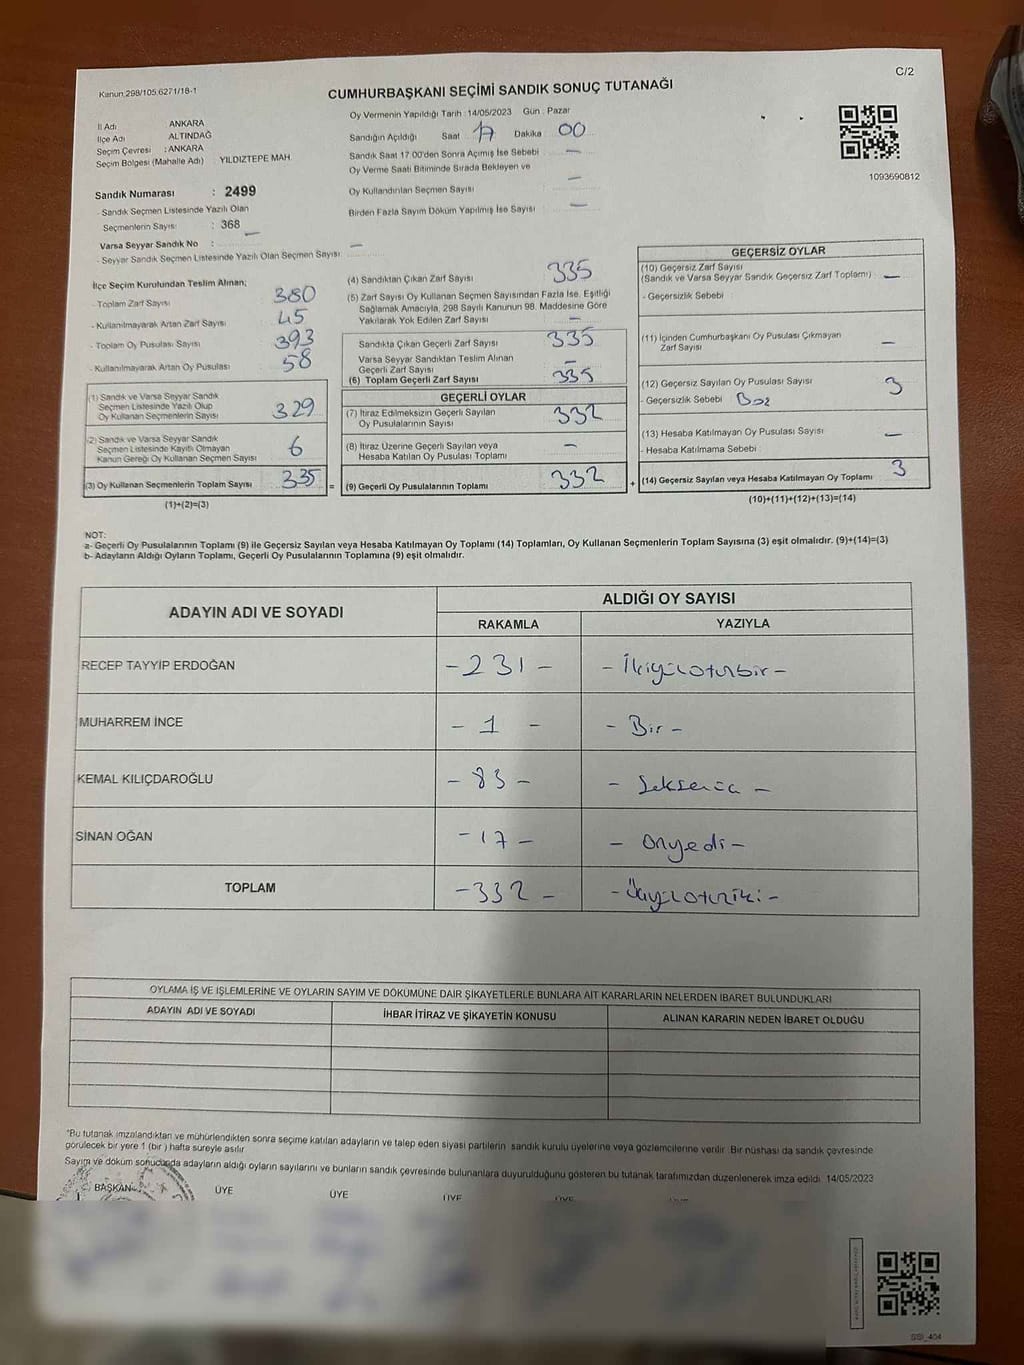 C/2
Kanun 298/105.6271/18-1
CUMHURBAŞKANI SEÇİMİ SANDIK SONUÇ TUTANAĞI
İl Adı ANKARA
İlçe Adı ALTINDAĞ
Seçim Çevresi : ANKARA
Seçim Bölgesi (Mahalle Adı) YILDIZTEPE MAH.
Sandık Numarası : 2499
- Sandık Seçmen Listesinde Yazılı Olan
Seçmenlerin Sayısı : 368
Varsa Seyyar Sandık No : —
- Seyyar Sandık Seçmen Listesinde Yazılı Olan Seçmen Sayısı —
Oy Vermenin Yapıldığı Tarih : 14/05/2023 Gün : Pazar
Sandığın Açıldığı Saat 17 Dakika 00
Sandık Saat 17 00'den Sonra Açımış İse Sebebi —
Oy Verme Saati Bitiminde Sırada Bekleyen ve
Oy Kullandırılan Seçmen Sayısı —
Birden Fazla Sayım Döküm Yapılmış İse Sayısı —
1093690812
İlçe Seçim Kurulundan Teslim Alınan;
- Toplam Zarf Sayısı 380
- Kullanılmayarak Artan Zarf Sayısı 45
- Toplam Oy Pusulası Sayısı 393
- Kullanılmayarak Artan Oy Pusulası 58
(1) Sandık ve Varsa Seyyar Sandık
Seçmen Listesinde Yazılı Olup
Oy Kullanan Seçmenlerin Sayısı 329
(2) Sandık ve Varsa Seyyar Sandık
Seçmen Listesinde Kayıtlı Olmayan
Kanun Gereği Oy Kullanan Seçmen Sayısı 6
(3) Oy Kullanan Seçmenlerin Toplam Sayısı 335 =
(1)+(2)=(3)
(4) Sandıktan Çıkan Zarf Sayısı 335
(5) Zarf Sayısı Oy Kullanan Seçmen Sayısından Fazla İse, Eşitliği
Sağlamak Amacıyla, 298 Sayılı Kanunun 98. Maddesine Göre
Yakılarak Yok Edilen Zarf Sayısı —
Sandıkta Çıkan Geçerli Zarf Sayısı 335
Varsa Seyyar Sandıktan Teslim Alınan
Geçerli Zarf Sayısı —
(6) Toplam Geçerli Zarf Sayısı 335
GEÇERLİ OYLAR
(7) İtiraz Edilmeksizin Geçerli Sayılan
Oy Pusulalarının Sayısı 332
(8) İtiraz Üzerine Geçerli Sayılan veya
Hesaba Katılan Oy Pusulası Toplamı —
(9) Geçerli Oy Pusulalarının Toplamı 332 +
GEÇERSİZ OYLAR
(10) Geçersiz Zarf Sayısı
(Sandık ve Varsa Seyyar Sandık Geçersiz Zarf Toplamı) —
- Geçersizlik Sebebi
(11) İçinden Cumhurbaşkanı Oy Pusulası Çıkmayan
Zarf Sayısı —
(12) Geçersiz Sayılan Oy Pusulası Sayısı 3
- Geçersizlik Sebebi
(13) Hesaba Katılmayan Oy Pusulası Sayısı —
- Hesaba Katılmama Sebebi
(14) Geçersiz Sayılan veya Hesaba Katılmayan Oy Toplamı 3
(10)+(11)+(12)+(13)=(14)
NOT:
a- Geçerli Oy Pusulalarının Toplamı (9) ile Geçersiz Sayılan veya Hesaba Katılmayan Oy Toplamı (14) Toplamları, Oy Kullanan Seçmenlerin Toplam Sayısına (3) eşit olmalıdır. (9)+(14)=(3)
b- Adayların Aldığı Oyların Toplamı, Geçerli Oy Pusulalarının Toplamına (9) eşit olmalıdır.
ADAYIN ADI VE SOYADI ALDIĞI OY SAYISI
RAKAMLA YAZIYLA
RECEP TAYYİP ERDOĞAN -231- -İkiyüzotuzbir-
MUHARREM İNCE -1- -Bir-
KEMAL KILIÇDAROĞLU -83- -Seksenüç-
SİNAN OĞAN -17- -Onyedi-
TOPLAM -332- -Üçyüzotuziki-
OYLAMA İŞ VE İŞLEMLERİNE VE OYLARIN SAYIM VE DÖKÜMÜNE DAİR ŞİKAYETLERLE BUNLARA AİT KARARLARIN NELERDEN İBARET BULUNDUKLARI
ADAYIN ADI VE SOYADI İHBAR İTİRAZ VE ŞİKAYETİN KONUSU ALINAN KARARIN NEDEN İBARET OLDUĞU
*Bu tutanak imzalandıktan ve mühürlendikten sonra seçime katılan adayların ve talep eden siyasi partilerin sandık kurulu üyelerine veya gözlemcilerine verilir. Bir nüshası da sandık çevresinde
görülecek bir yere 1 (bir) hafta süreyle asılır.
Sayım ve döküm sonucunda adayların aldığı oyların sayılarını ve bunların sandık çevresinde bulunanlara duyurulduğunu gösteren bu tutanak tarafımızdan düzenlenerek imza edildi. 14/05/2023
BAŞKAN ÜYE ÜYE ÜYE ÜYE ÜYE
SSI_404